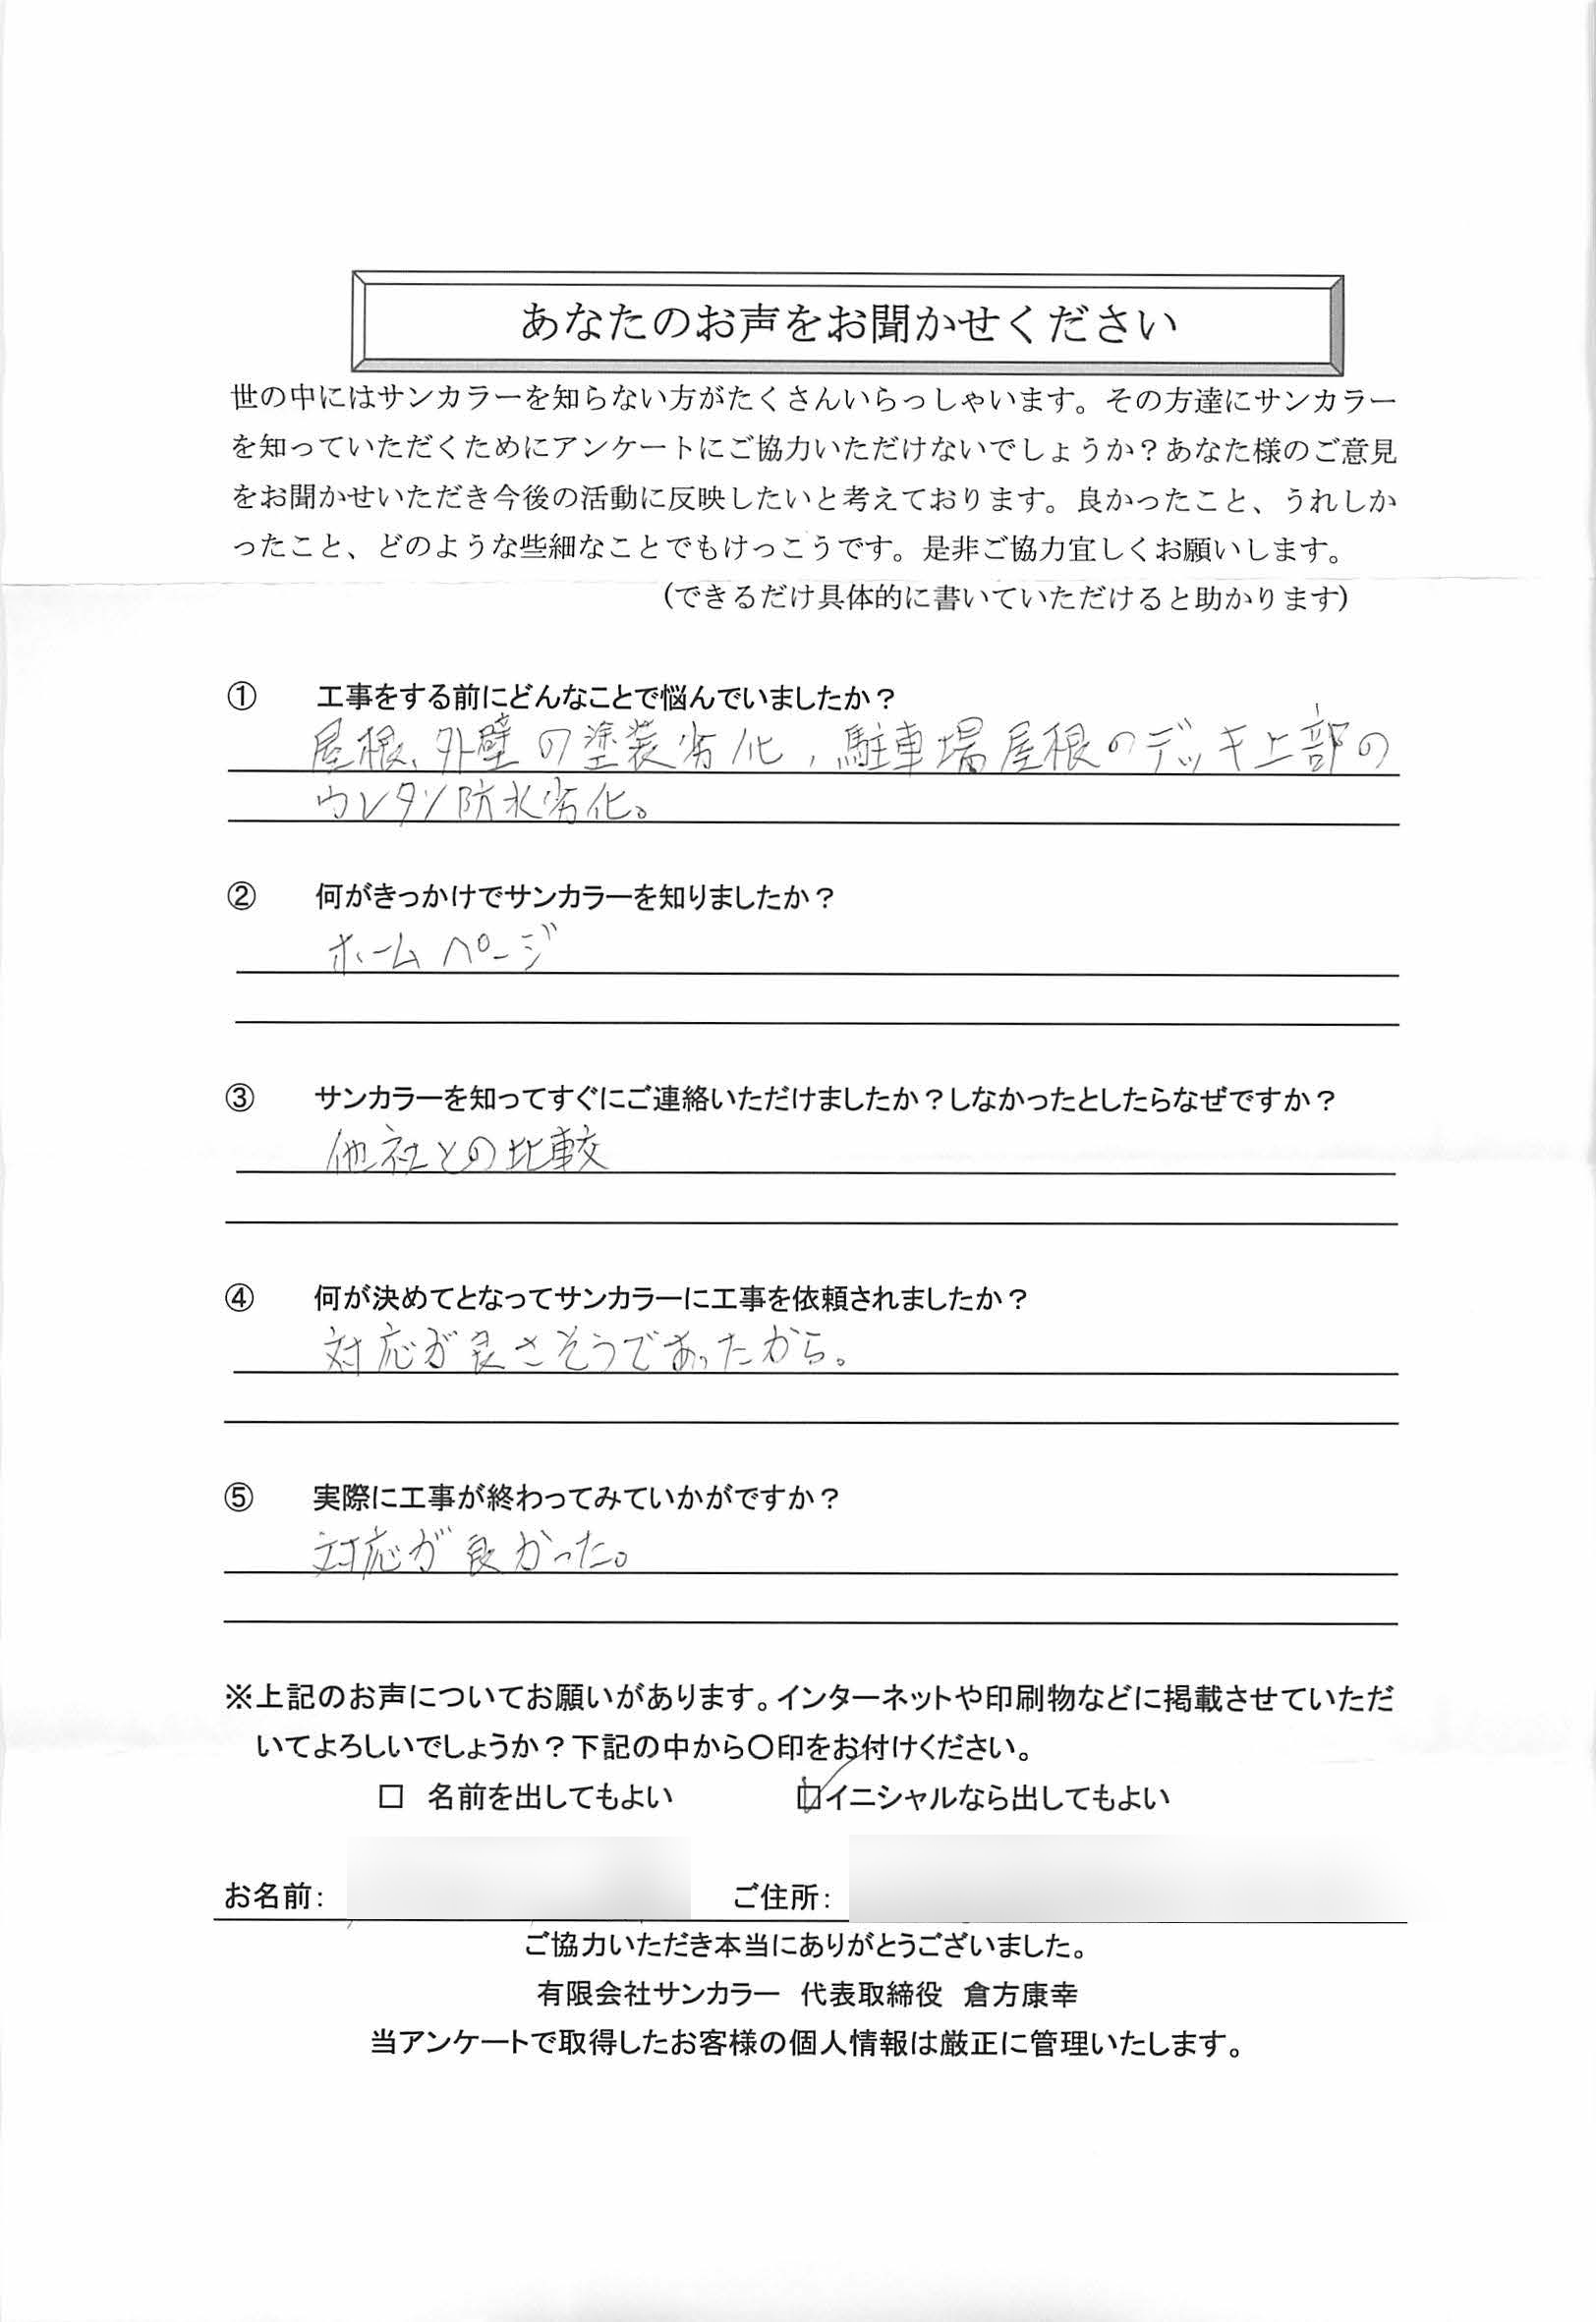 あなたのお声をお聞かせください
世の中にはサンカラーを知らない方がたくさんいらっしゃいます。その方達にサンカラー
を知っていただくためにアンケートにご協力いただけないでしょうか？あなた様のご意見
をお聞かせいただき今後の活動に反映したいと考えております。良かったこと、うれしか
ったこと、どのような些細なことでもけっこうです。是非ご協力宜しくお願いします。
（できるだけ具体的に書いていただけると助かります）
① 工事をする前にどんなことで悩んでいましたか？
屋根、外壁の塗装劣化，駐車場屋根のデッキ上部の
ウレタン防水劣化。
② 何がきっかけでサンカラーを知りましたか？
ホームページ
③ サンカラーを知ってすぐにご連絡いただけましたか？しなかったとしたらなぜですか？
他社との比較
④ 何が決めてとなってサンカラーに工事を依頼されましたか？
対応が良さそうであったから。
⑤ 実際に工事が終わってみていかがですか？
対応が良かった。
※上記のお声についてお願いがあります。インターネットや印刷物などに掲載させていただ
いてよろしいでしょうか？下記の中から〇印をお付けください。
□ 名前を出してもよい ☑イニシャルなら出してもよい
お名前： ご住所：
ご協力いただき本当にありがとうございました。
有限会社サンカラー 代表取締役 倉方康幸
当アンケートで取得したお客様の個人情報は厳正に管理いたします。